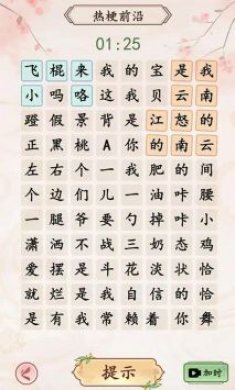 热梗前沿
01:25
飞棍来我的宝是我
小吗咯这我贝云南
蹬假景背是江怒的
正黑桃A你的南云
左右个一我肥的间
个边们儿一油咔腰
一腿爷要勺掉咔小
潇洒不战三奶态鸡
爱摆是斗花淡状恰
就烂是我自信的恰
是有我常赖着你舞
提示
加时